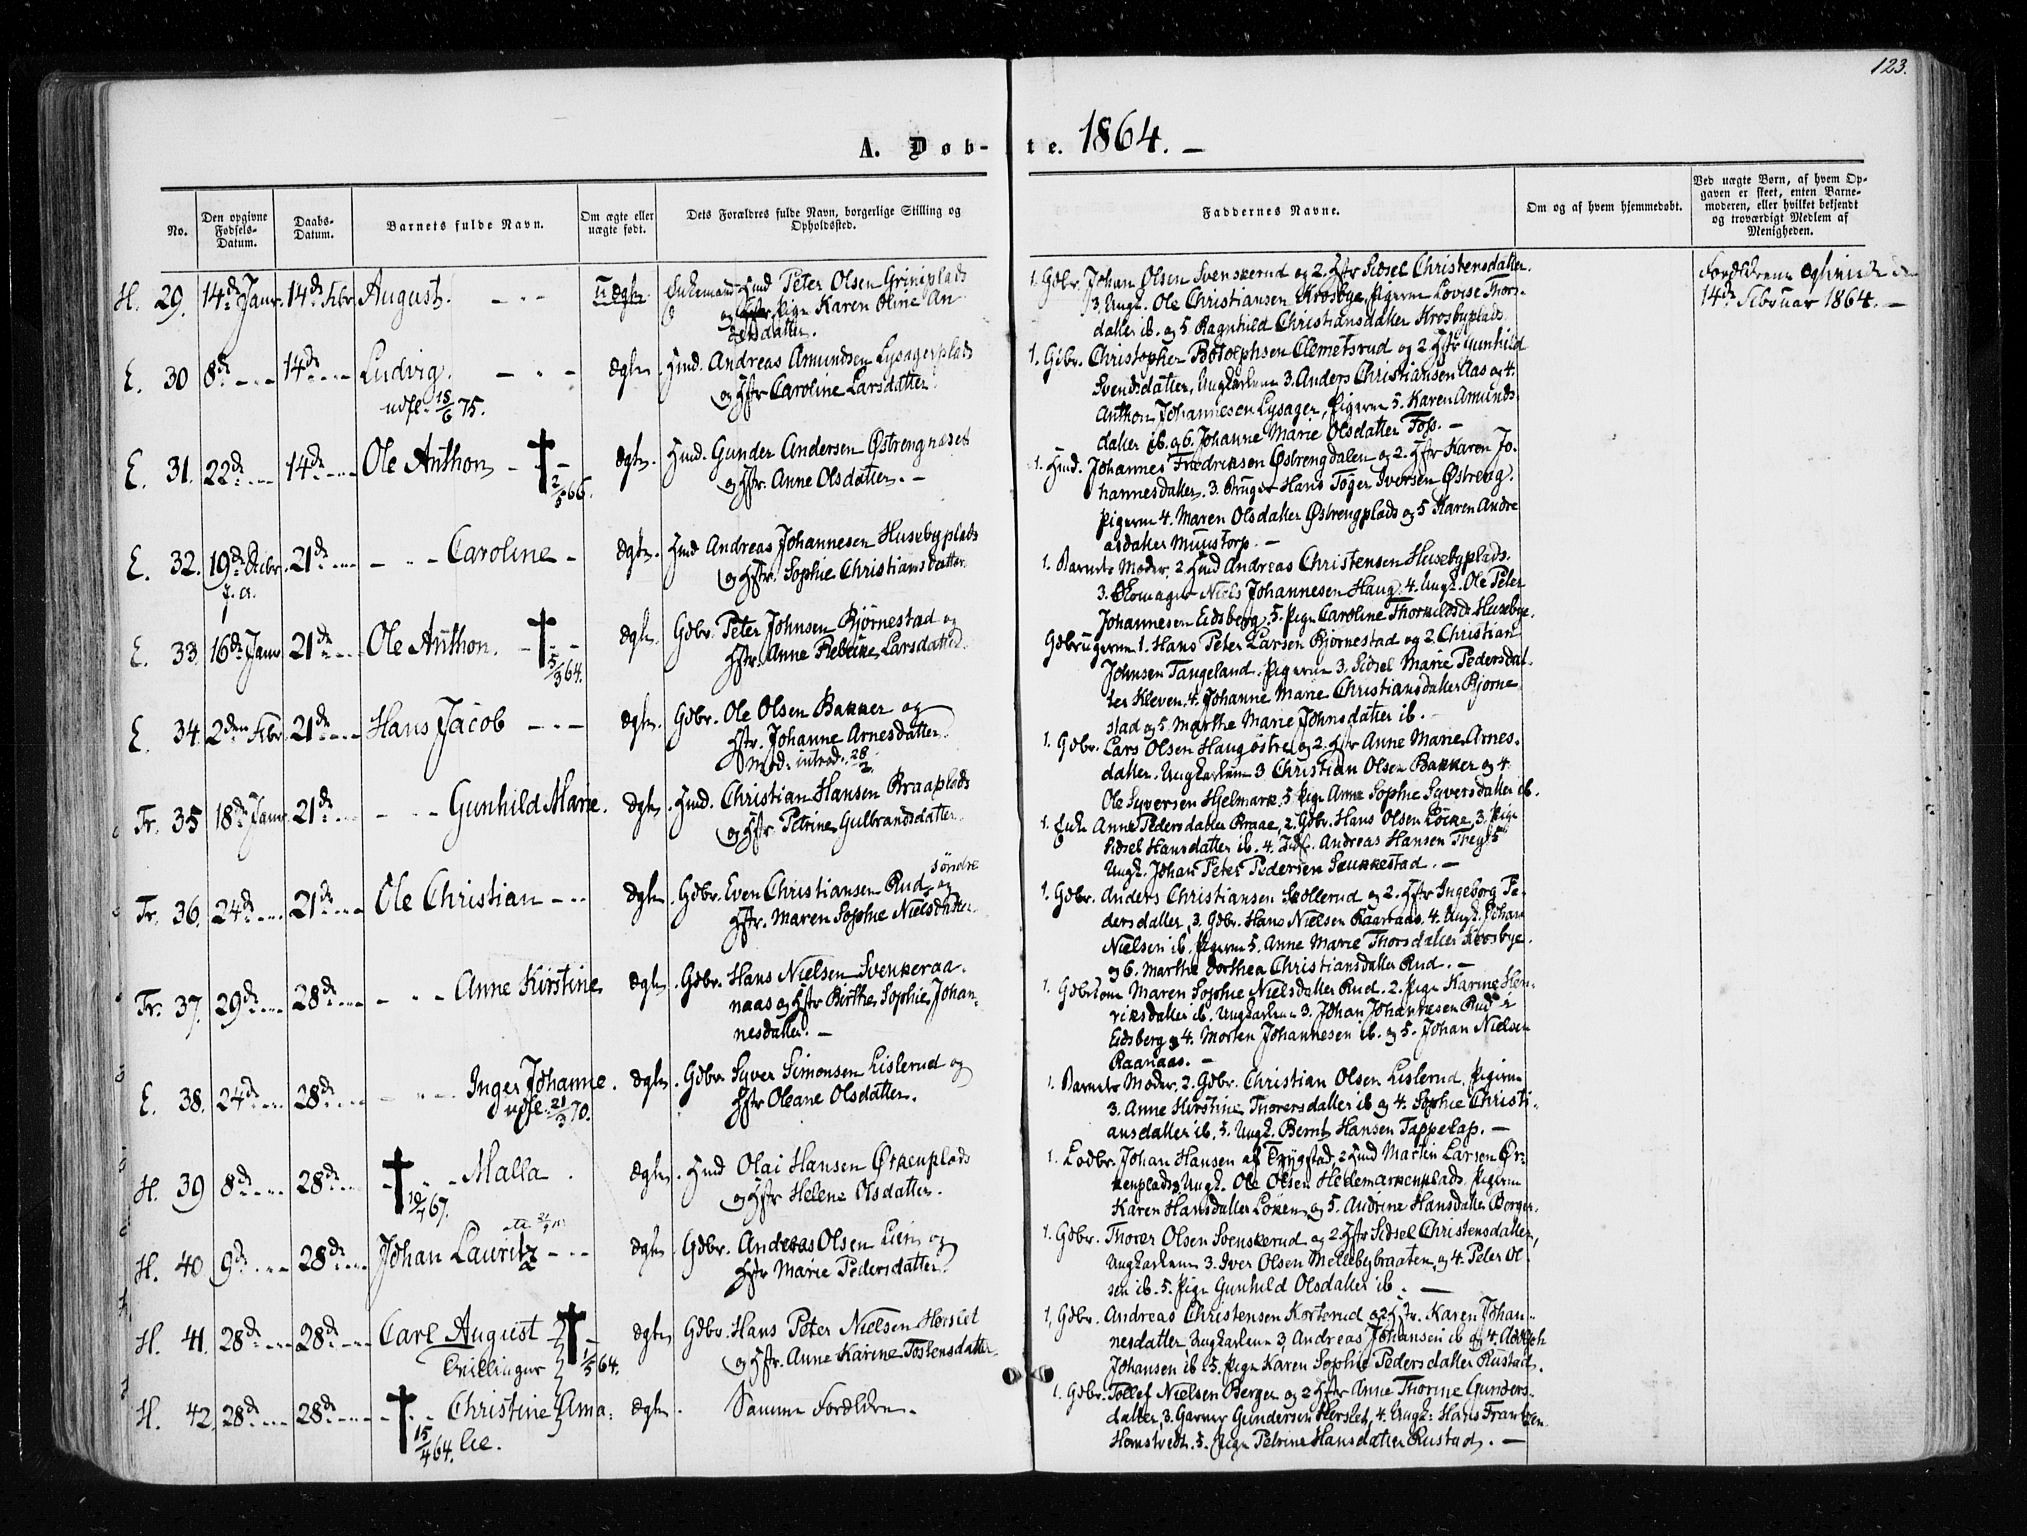 123.
A. Døb- te. 1864. —
No.
Den opgivne Fødsels-Datum.
Daabs-Datum.
Barnets fulde Navn.
Om ægte eller uægte født.
Dets Forældres fulde Navn, borgerlige Stilling og Opholdssted.
Faddernes Navne.
Om og af hvem hjemmedøbt.
Ved uægte Børn, af hvem Opgaven er skeet, enten Barnemoderen, eller hvilket bekjendt og troværdigt Medlem af Menigheden.
H. 29. 14de Janr 14de Febr August. Uægte. Enkemand Hmd Peter Olsen Griniplads
og Pige Karen Oline An-
dersdatter.
1. Gdbr. Johan Olsen Svenskerud og 2. Hstr Sidsel Christensdatter.
3. Ungk. Ole Christiansen Krosbye, Pigerne Lovise Thors-
datter ib. og 5 Ragnhild Christiansdatter Krosbyplads.
14de Februar 1864. —
E. 30 8de 14de Ludvig. ægte Hmd. Andreas Amundsen Lysagerplads
udfl. 15/6 75. og Hstr Caroline Larsdatter.
1. Gdbr. Christopher Botolphsen Clemetsrud og 2 Hstr Gunhild
Svendsdatter, Ungkarlene 3. Anders Christiansen Aas og 4.
Anthon Johannesen Lysager, Pigerne 5. Karen Amunds-
datter ib. og 6. Johanne Marie Olsdatter Foss. —
E. 31. 22de 14de Ole Anthon ægte. Hmd. Gunder Andersen Østrengnæset
2/5 66. og Hstr. Anne Olsdatter. —
1. Hmd. Johannes Fredriksen Østrengdalen og 2. Hstr Karen Jo-
hannesdatter. 3. Bruger Hans Toger Iversen Østreng.
Pigerne 4. Maren Olsdatter Østrengplads og 5 Karen Andre
asdatter Munstorp. —
E. 32. 19de Decbr. 21de Caroline ægte. Hmd Andreas Johannesen Husebyplads
f. a. og Hstr. Sophie Christiansdatter.
1. Barnets Moder, 2 Hmd Andreas Christensen Husebyplads.
3. Skomager Niels Johannesen Haug. 4. Ungk. Ole Peter
Johannesen Eidsberg. 5. Pige Caroline Husebye.
E. 33. 16de Janr 21de Ole Anthon. ægte. Gdbr. Peter Johnsen Bjørnestad og
5/3 64. Hstr. Anne Rebekke Larsdatter.
Gdbrugerne 1. Hans Peter Larsen Bjørnestad og 2. Christian
Johnsen Tangeland. Pigerne 3. Sidsel Marie Pedersdat-
ter Kleven. 4. Johanne Marie Christiansdatter Bjørne
stad og 5. Marthe Marie Johnsdatter ib. —
E. 34. 2den Febr. 21de Hans Jacob ægte. Gdbr. Ole Olsen Bakker og
Hstr. Johanne Arnesdatter.
Mod. introd. 28/2.
1. Gdbr. Lars Olsen Haug østre og 2. Hstr Anne Marie Arnes-
datter. Ungkarlene 3 Christian Olsen Bakker og 4
Ole Syversen Hjelmark. 5 Pige Anne Sophie Syversdatter ib.
Fr. 35 18de Janr. 21de Gunhild Marie. ægte Hmd. Christian Hansen Braaplads
og Hstr Petrine Gulbrandsdatter.
1. Enke Anne Pedersdatter Braae, 2. Gdbr. Hans Olsen Løcke, 3. Pige
Sidsel Hansdatter ib. 4. Andreas Hansen 5
Ungk. Johan Peter Pedersen Slukkestad. —
Fr. 36. 24de 21de Ole Christian ægte Gdbr. Even Christiansen Rud søndre og
Hstr. Maren Sophie Nielsdatter.
1. Gdbr. Anders Christiansen Skollerud og 2. Hstr Ingeborg Pe-
dersdatter, 3. Gdbr. Hans Nielsen Raanaas. 4. Ungk. Johan
Nielsen ib. Pigerne 5. Anne Marie Thorsdatter Krosbye.
og 6. Marthe Dorthea Christiansdatter Rud. —
Fr. 37. 29de 28de Anne Kirstine ægte Gdbr. Hans Nielsen Svenkeraa-
naas og Hstr Birthe Sophie Johan-
nesdatter. —
1. Gdbrkone Maren Sophie Nielsdatter Rud. 2. Pige Karine Hen-
riksdatter ib. Ungkarlene 3. Johan Johannesen Rud i
Eidsberg og 4. Morten Johannesen ib. og 5. Johan Nielsen
Raanaas. —
E. 38. 24de 28de Inger Johanne. ægte. Gdbr Syver Simonsen Lislerud og
udfl. 21/3 70. Hstr Oleane Olsdatter.
1. Barnets Moder, 2. Gdbr. Christian Olsen Lislerud. Pigerne
3. Anne Kirstine Thorersdatter ib og 4. Sophie Christi-
ansdatter ib. 5. Ungk. Bernt Hansen Tappelap. —
H. 39 8de 28de Malla. ægte. Hmd Olai Hansen Ørkenplads
67. og Hstr Helene Olsdatter.
1. Lodbr. Johan Hansen af Trygstad, 2 Hmd Martin Larsen Ør-
kenplads, Ungk. Ole Olsen Hedemarkenplads. Pigerne
Karen Hansdatter Løken og 5. Andrine Hansdatter Berger.
H. 40 9de 28de Johan Lauritz ægte Gdbr. Andreas Olsen Lien og
Hstr Marie Pedersdatter.
1. Gdbr. Thorer Olsen Svenskerud og 2 Hstr Sidsel Christensdatter,
Ungkarlene 3. Iver Olsen Mellebybraaten og 4. Peter Ol-
sen ib. 5. Pige Gunhild Olsdatter ib. —
H. 41. 28de 28de Carl August ægte Gdbr. Hans Peter Nielsen Herslet
Tvillinger 1/5 64. og Hstr. Anne Karine Tostensdatter.
1. Gdbr. Andreas Christensen Korterud og 2 Hstr. Karen Johan-
nesdatter, Ungkarlene 3. Andreas Johansen ib og 4. Adolph
Johansen ib. 5. Pige Karen Sophie Pedersdatter Rustad.
H. 42. 28de 28de Christine Ama- ægte. Samme Forældre.
15/4 64. lie.
1. Gdbr. Tollef Nielsen Berger og 2 Hstr Anne Thorine Gunders-
datter, 3. Garver Gundersen Hersleth, 4. Ungk. Hans Frantzen
Homstvedt. 5. Pige Petrine Hansdatter Rustad. —